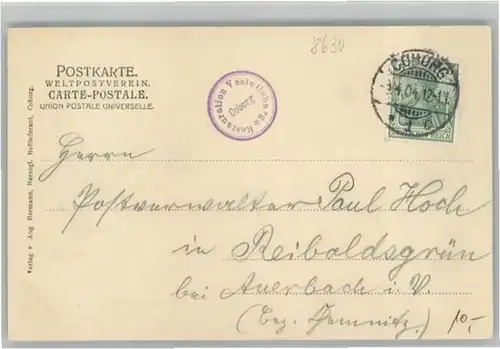 8630
POSTKARTE.
WELTPOSTVEREIN.
CARTE-POSTALE.
UNION POSTALE UNIVERSELLE.
Restauration Veste Coburg
Coburg
COBURG
3.4.04 12-1V.
REICH
Herrn
Postverwalter Paul Hoch
in Reiboldsgrün
bei Auerbach i. V.
(Bez. Chemnitz.)
10,-
Verlag v. Aug. Hermann, Herzogl. Hoflieferant, Coburg.